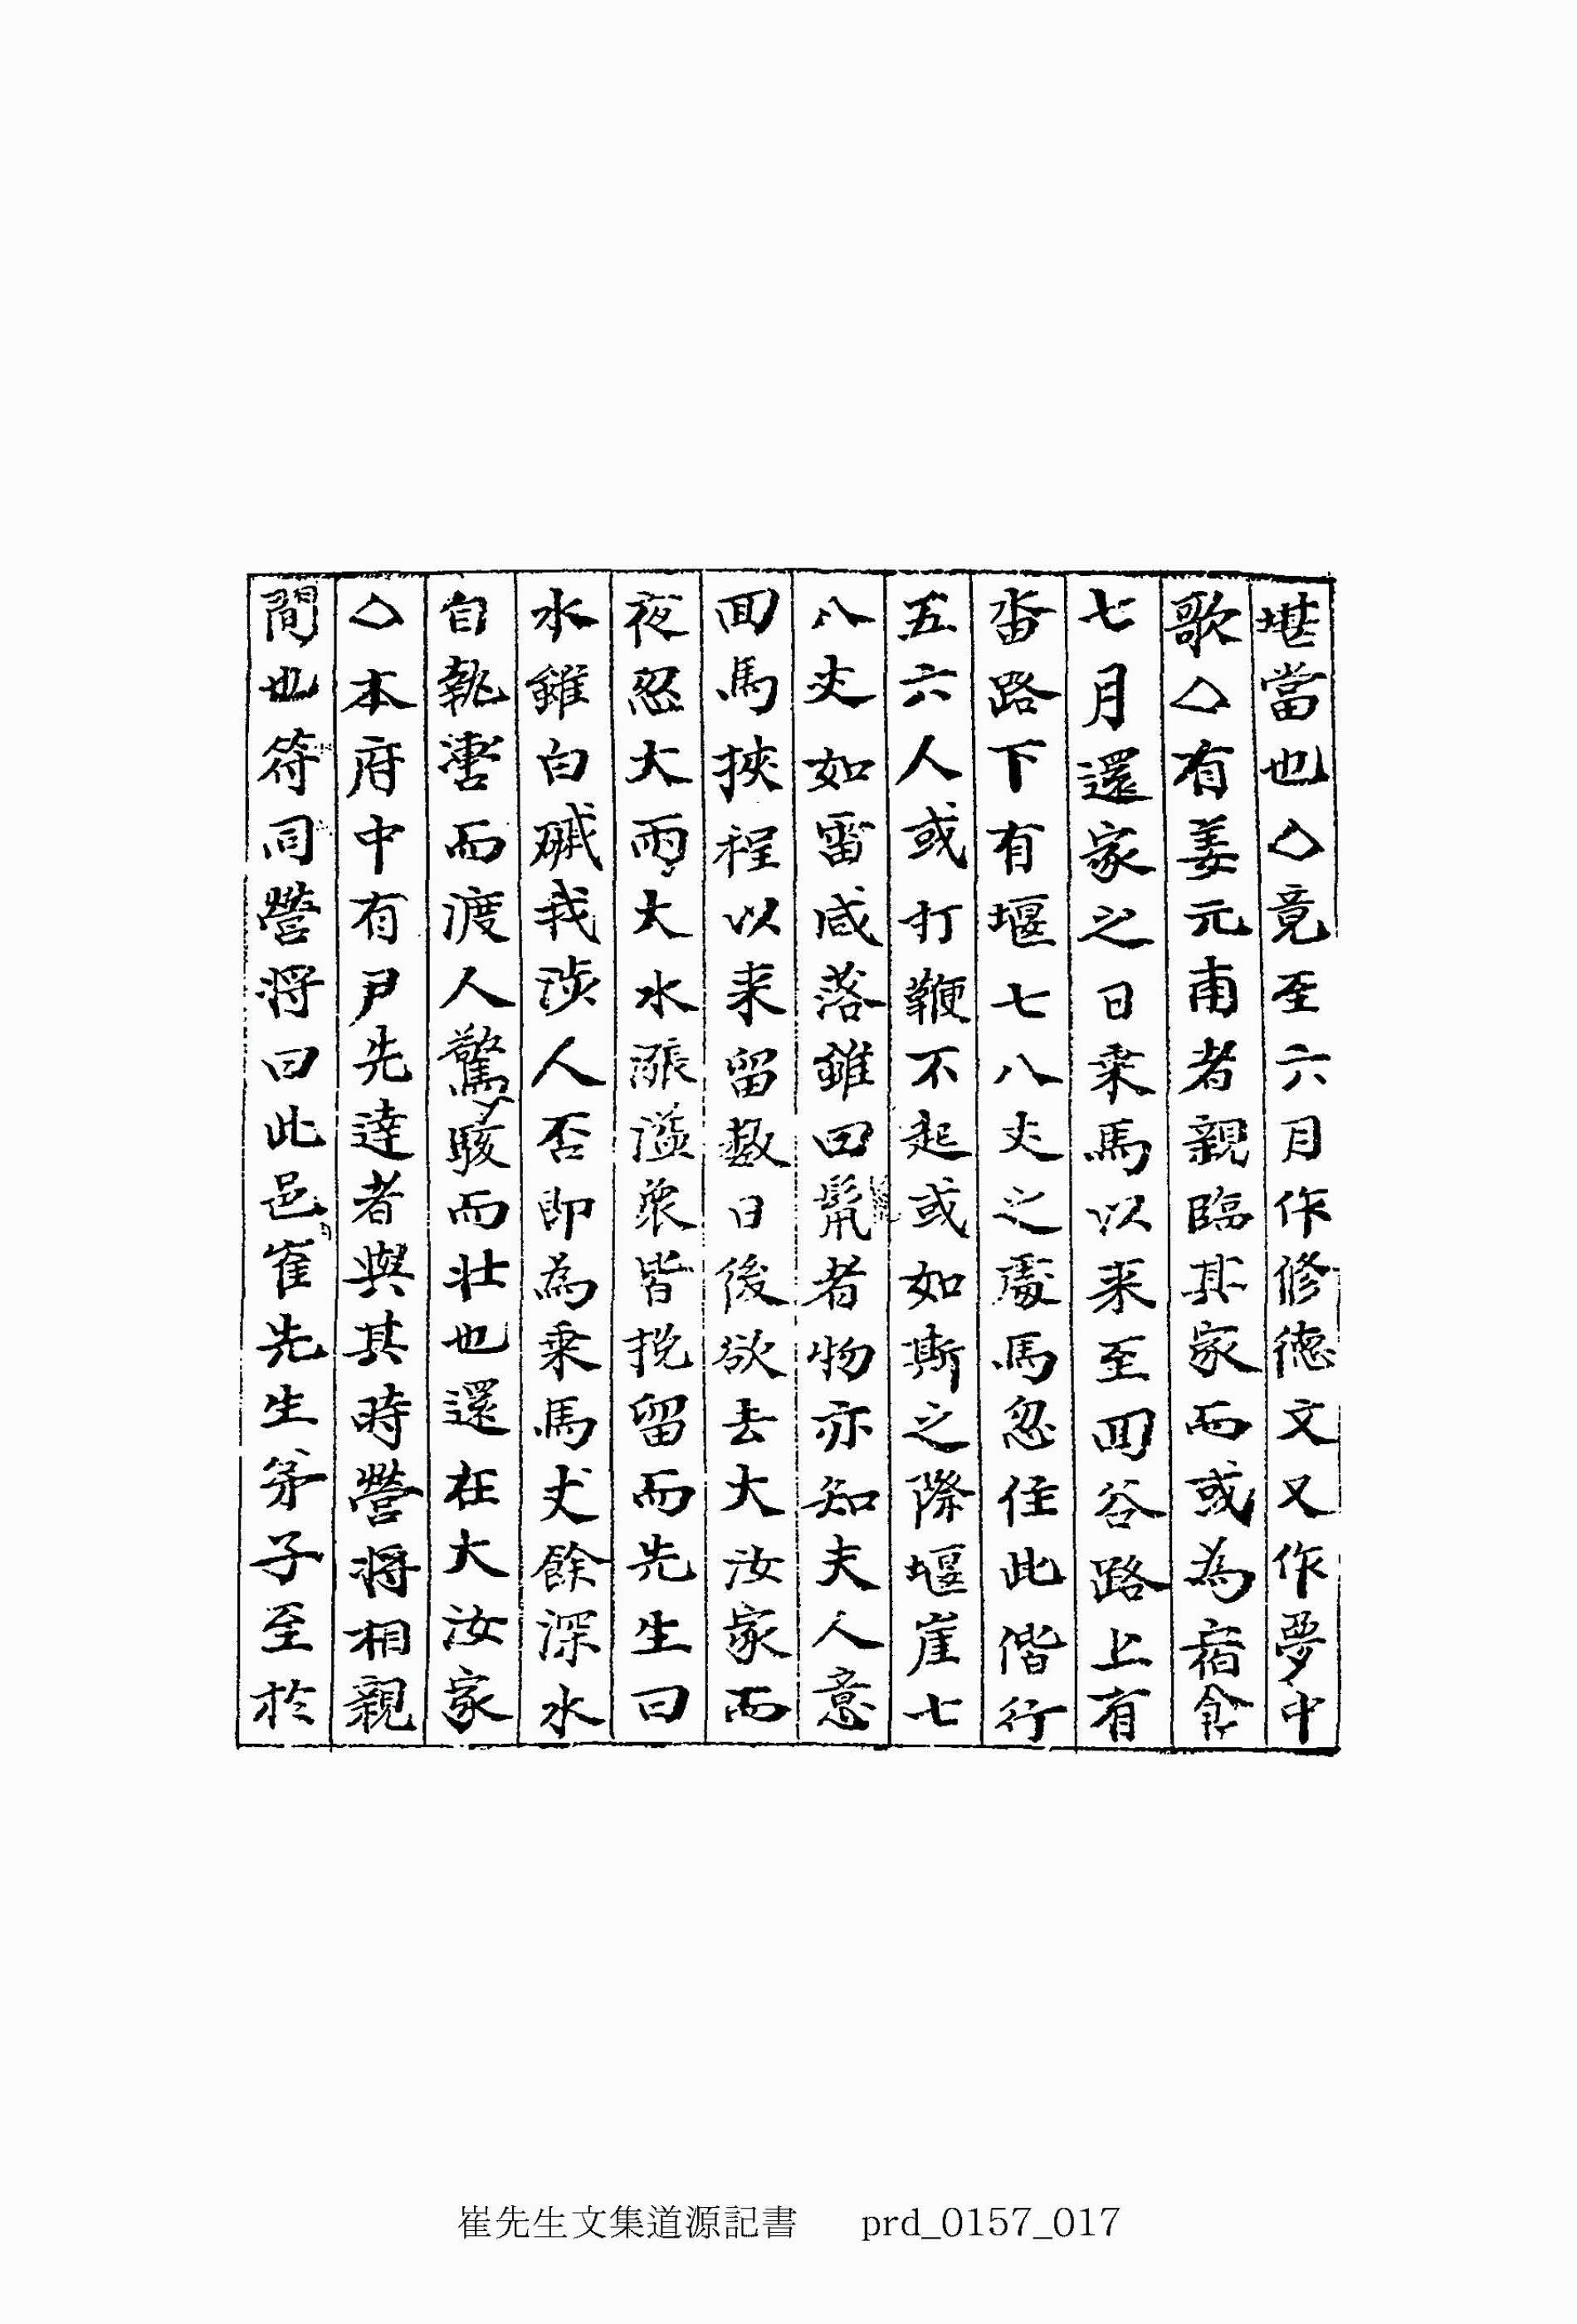 堪當也◇竟至六月作修德文又作夢中
歌◇有姜元甫者親臨其家而或為宿食
七月還家之日乘馬以来至回谷路上有
畓路下有堰七八丈之處馬忽住此偕行
五六人或打鞭不起或如斯之際堰崖七
八丈如雷咸落雖曰鬣者物亦知夫人意
回馬挾程以来留数日後欲去大汝家而
夜忽大雨大水漲溢衆皆挽留而先生曰
水雖白碱我涉人否即為乘馬丈餘深水
自執轡而渡人驚駭而壯也還在大汝家
◇本府中有尹先達者與其時營將相親
間也符同營將曰此邑崔先生弟子至於
崔先生文集道源記書 prd_0157_017